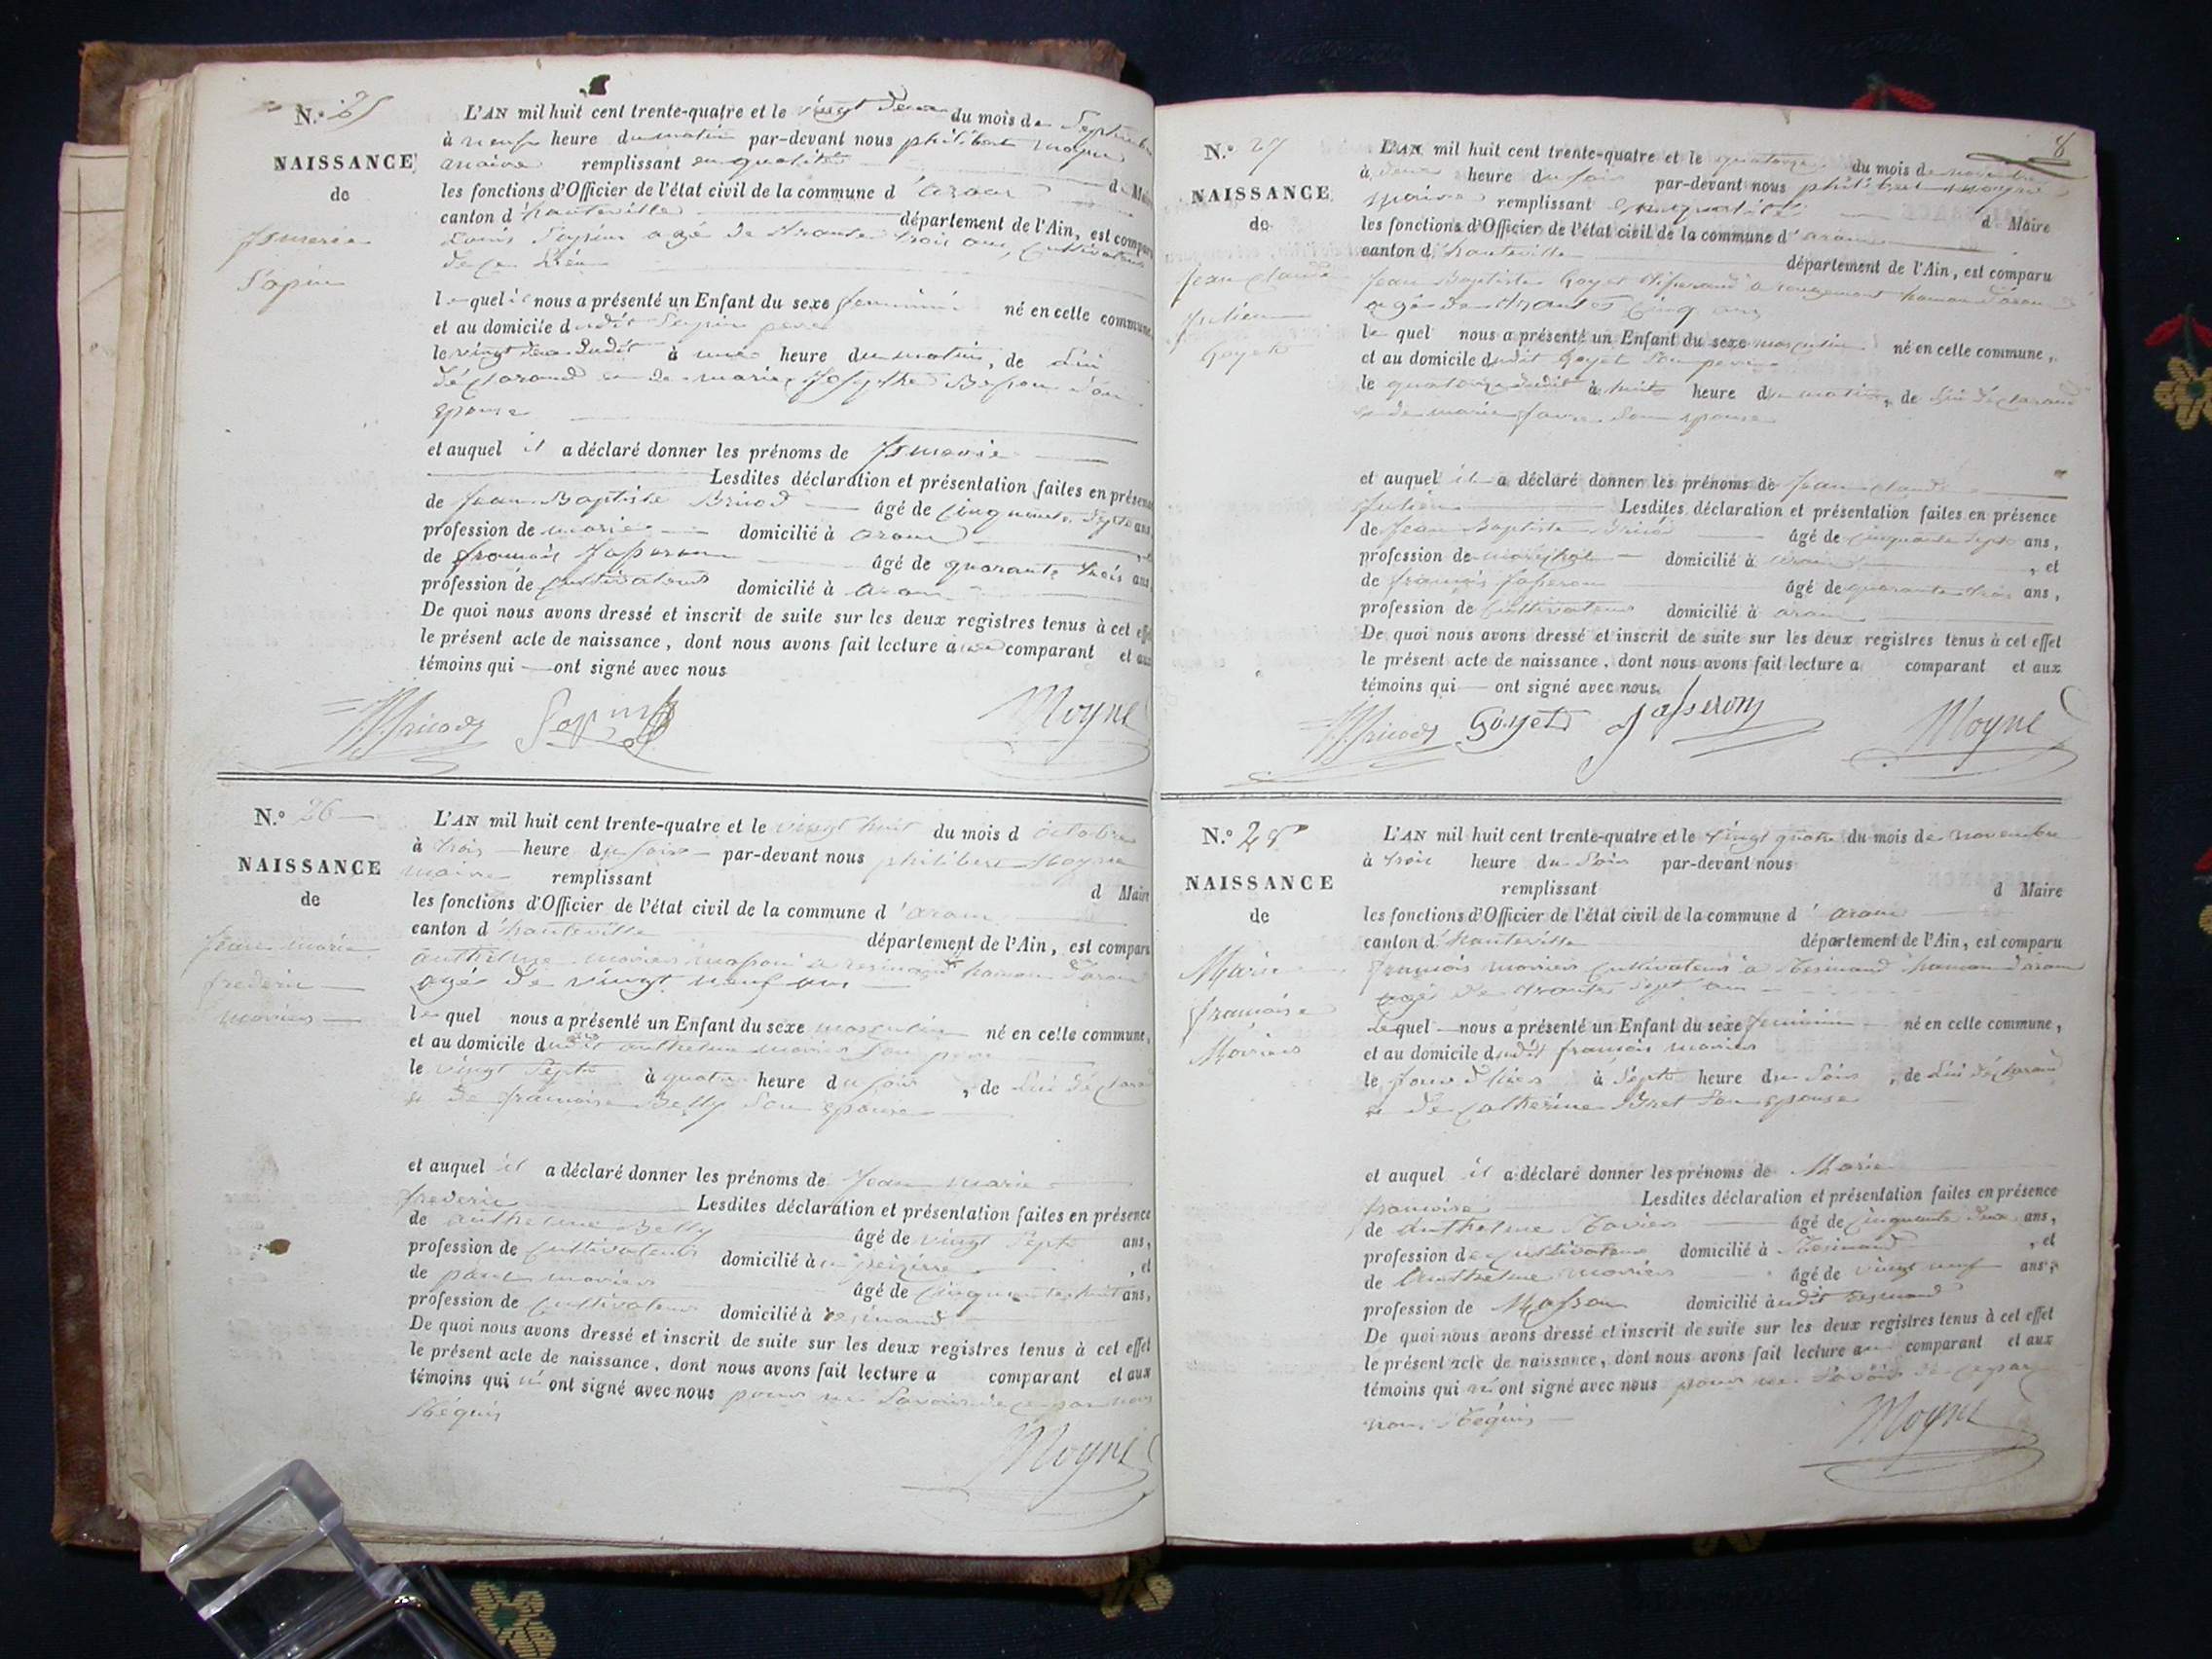 N.° 25
NAISSANCE
de
Sapin
L'AN mil huit cent trente-quatre et le vingt deux du mois de Septembre
à neuf heure du matin par-devant nous philibert moyne
maire remplissant en qualité
les fonctions d'Officier de l'état civil de la commune d'aranc d Maire
canton d'hauteville département de l'Ain, est comparu
Louis Sapin agé de trante trois ans, cultivateur
de ce Lieu
le quel il nous a présenté un Enfant du sexe feminin né en celle commune,
et au domicile dudit Sapin pere
le vingt deux dudit à une heure du matin, de Lui
déclarand et de marie Josephte Besson Son
epouse
et auquel il a déclaré donner les prénoms de
Lesdites déclaration et présentation faites en présence
de Jean Baptiste Bricod âgé de cinquante Sept ans,
profession de domicilié à aranc
de francois Jasseron âgé de quarante trois ans
profession de cultivateur domicilié à aranc
De quoi nous avons dressé et inscrit de suite sur les deux registres tenus à cet effet
le présent acte de naissance, dont nous avons fait lecture au comparant et aux
témoins qui — ont signé avec nous
Bricod Sapin Moyne
N.° 26
NAISSANCE
de
Jean marie
frederic
moiriers
L'AN mil huit cent trente-quatre et le vingt huit du mois d octobre
à trois heure du soir par-devant nous philibert Moyne
maire remplissant
les fonctions d'Officier de l'état civil de la commune d'aranc d Maire
canton d'hauteville département de l'Ain, est comparu
anthelme moiriers masson a resinand hameau d'aranc
agé de vingt neuf ans
le quel nous a présenté un Enfant du sexe masculin né en celle commune,
et au domicile dudit anthelme moiriers Son pere
le vingt Sept à quatre heure du soir, de Lui déclarand
et de francoise Belly Son epouse
et auquel il a déclaré donner les prénoms de Jean marie
frederic Lesdites déclaration et présentation faites en présence
de anthelme Belly âgé de vingt Sept ans,
profession de cultivateur domicilié à, et
de paul moiriers âgé de cinquante huit ans,
profession de cultivateur domicilié à resinand
De quoi nous avons dressé et inscrit de suite sur les deux registres tenus à cet effet
le présent acte de naissance, dont nous avons fait lecture a comparant et aux
témoins qui n' ont signé avec nous pour ne Savoir de ce par nous
Réquis
Moyne
8
N.° 27
NAISSANCE
de
Jean claude
Julien
Goyet
L'AN mil huit cent trente-quatre et le quatorze du mois de novembre
à deux heure du soir par-devant nous philibert moyne
maire remplissant en qualité
les fonctions d'Officier de l'état civil de la commune d'aranc d Maire
canton d'hauteville département de l'Ain, est comparu
Jean Baptiste Goyet a rougemont hameau d'aranc
agé de trante cinq ans
le quel nous a présenté un Enfant du sexe masculin né en celle commune,
et au domicile dudit Goyet Son pere
le quatorze dudit à huit heure du matin, de Lui déclarand
et de marie favre Son epouse
et auquel il a déclaré donner les prénoms de Jean claude
Julien Lesdites déclaration et présentation faites en présence
de Jean Baptiste Bricod âgé de cinquante Sept ans,
profession de maréchal domicilié à aranc, et
de françois Jasseron âgé de quarante trois ans,
profession de cultivateur domicilié à aranc
De quoi nous avons dressé et inscrit de suite sur les deux registres tenus à cet effet
le présent acte de naissance, dont nous avons fait lecture a comparant et aux
témoins qui — ont signé avec nous.
Bricod Goyet Jasseron Moyne
N.° 28
NAISSANCE
de
Marie
francoise
Moiriers
L'AN mil huit cent trente-quatre et le vingt quatre du mois de novembre
à trois heure du Soir par-devant nous
remplissant d Maire
les fonctions d'Officier de l'état civil de la commune d'aranc
canton d'hauteville département de l'Ain, est comparu
francois moiriers cultivateur a Resinand hameau d'aranc
agé de trante Sept ans
Le quel nous a présenté un Enfant du sexe feminin né en celle commune,
et au domicile dudit francois moiriers
le jour d'hier à Sept heure du Soir, de Lui déclarand
et de Catherine Son Epouse
et auquel il a déclaré donner les prénoms de Marie
francoise Lesdites déclaration et présentation faites en présence
de Anthelme Moiriers âgé de cinquante deux ans,
profession de cultivateur domicilié à Resinand, et
de Anthelme moiriers âgé de vingt neuf ans,
profession de Masson domicilié audit resinand
De quoi nous avons dressé et inscrit de suite sur les deux registres tenus à cet effet
le présent acte de naissance, dont nous avons fait lecture au comparant et aux
témoins qui n' ont signé avec nous pour ne Savoir de ce par
nous Réquis
Moyne